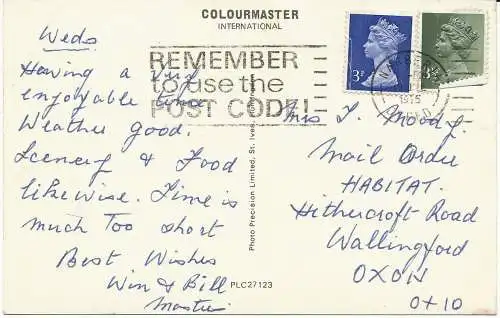 COLOURMASTER
INTERNATIONAL
REMEMBER
to use the
POST CODE!
3P
3½P
1975
Weds.
Having a very
enjoyable time
Weather good.
Scenery & Food
likewise. Time is
much Too short
Best Wishes
Win & Bill
PLC27123
Photo Precision Limited, St. Ives,
Mrs J. Moody.
Mail Order
HABITAT.
Hithercroft Road
Wallingford
OXON
OX10